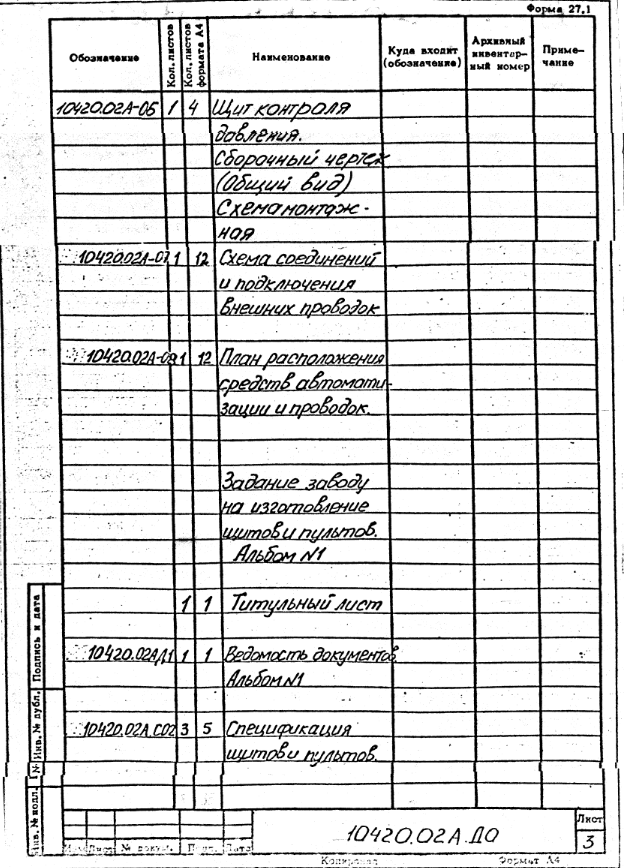 Форма 27.1
Обозначение Кол. листов Кол. листов формата А4 Наименование Куда входит (обозначение) Архивный инвентар-ный номер Приме-чание
10420.02А-06 1 4 Щит контроля
давления.
Сборочный чертеж
(Общий вид)
Схема монтаж-
ная
10420.02А-07 1 12 Схема соединений
и подключения
внешних проводок
1 12 План расположения
средств автомати-
зации и проводок.
Задание заводу
на изготовление
щитов и пультов.
Альбом N1
1 1 Титульный лист
10420.02А Д1 1 1 Ведомость документов
Альбом N1
10420.02А.С02 3 5 Спецификация
щитов и пультов.
Подпись и дата
Инв. № дубл.
Инв. № подл.
Изм Лист № докум. Подп. Дата
10420.02А.Д0
Лист
3
Копировал Формат А4